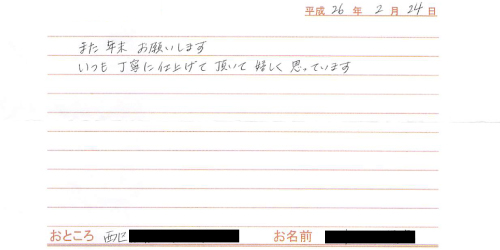 平成 26 年 2 月 24 日
また 年末 お願いします
いつも 丁寧に 仕上げて 頂いて 嬉しく 思っています
おところ 西区
お名前